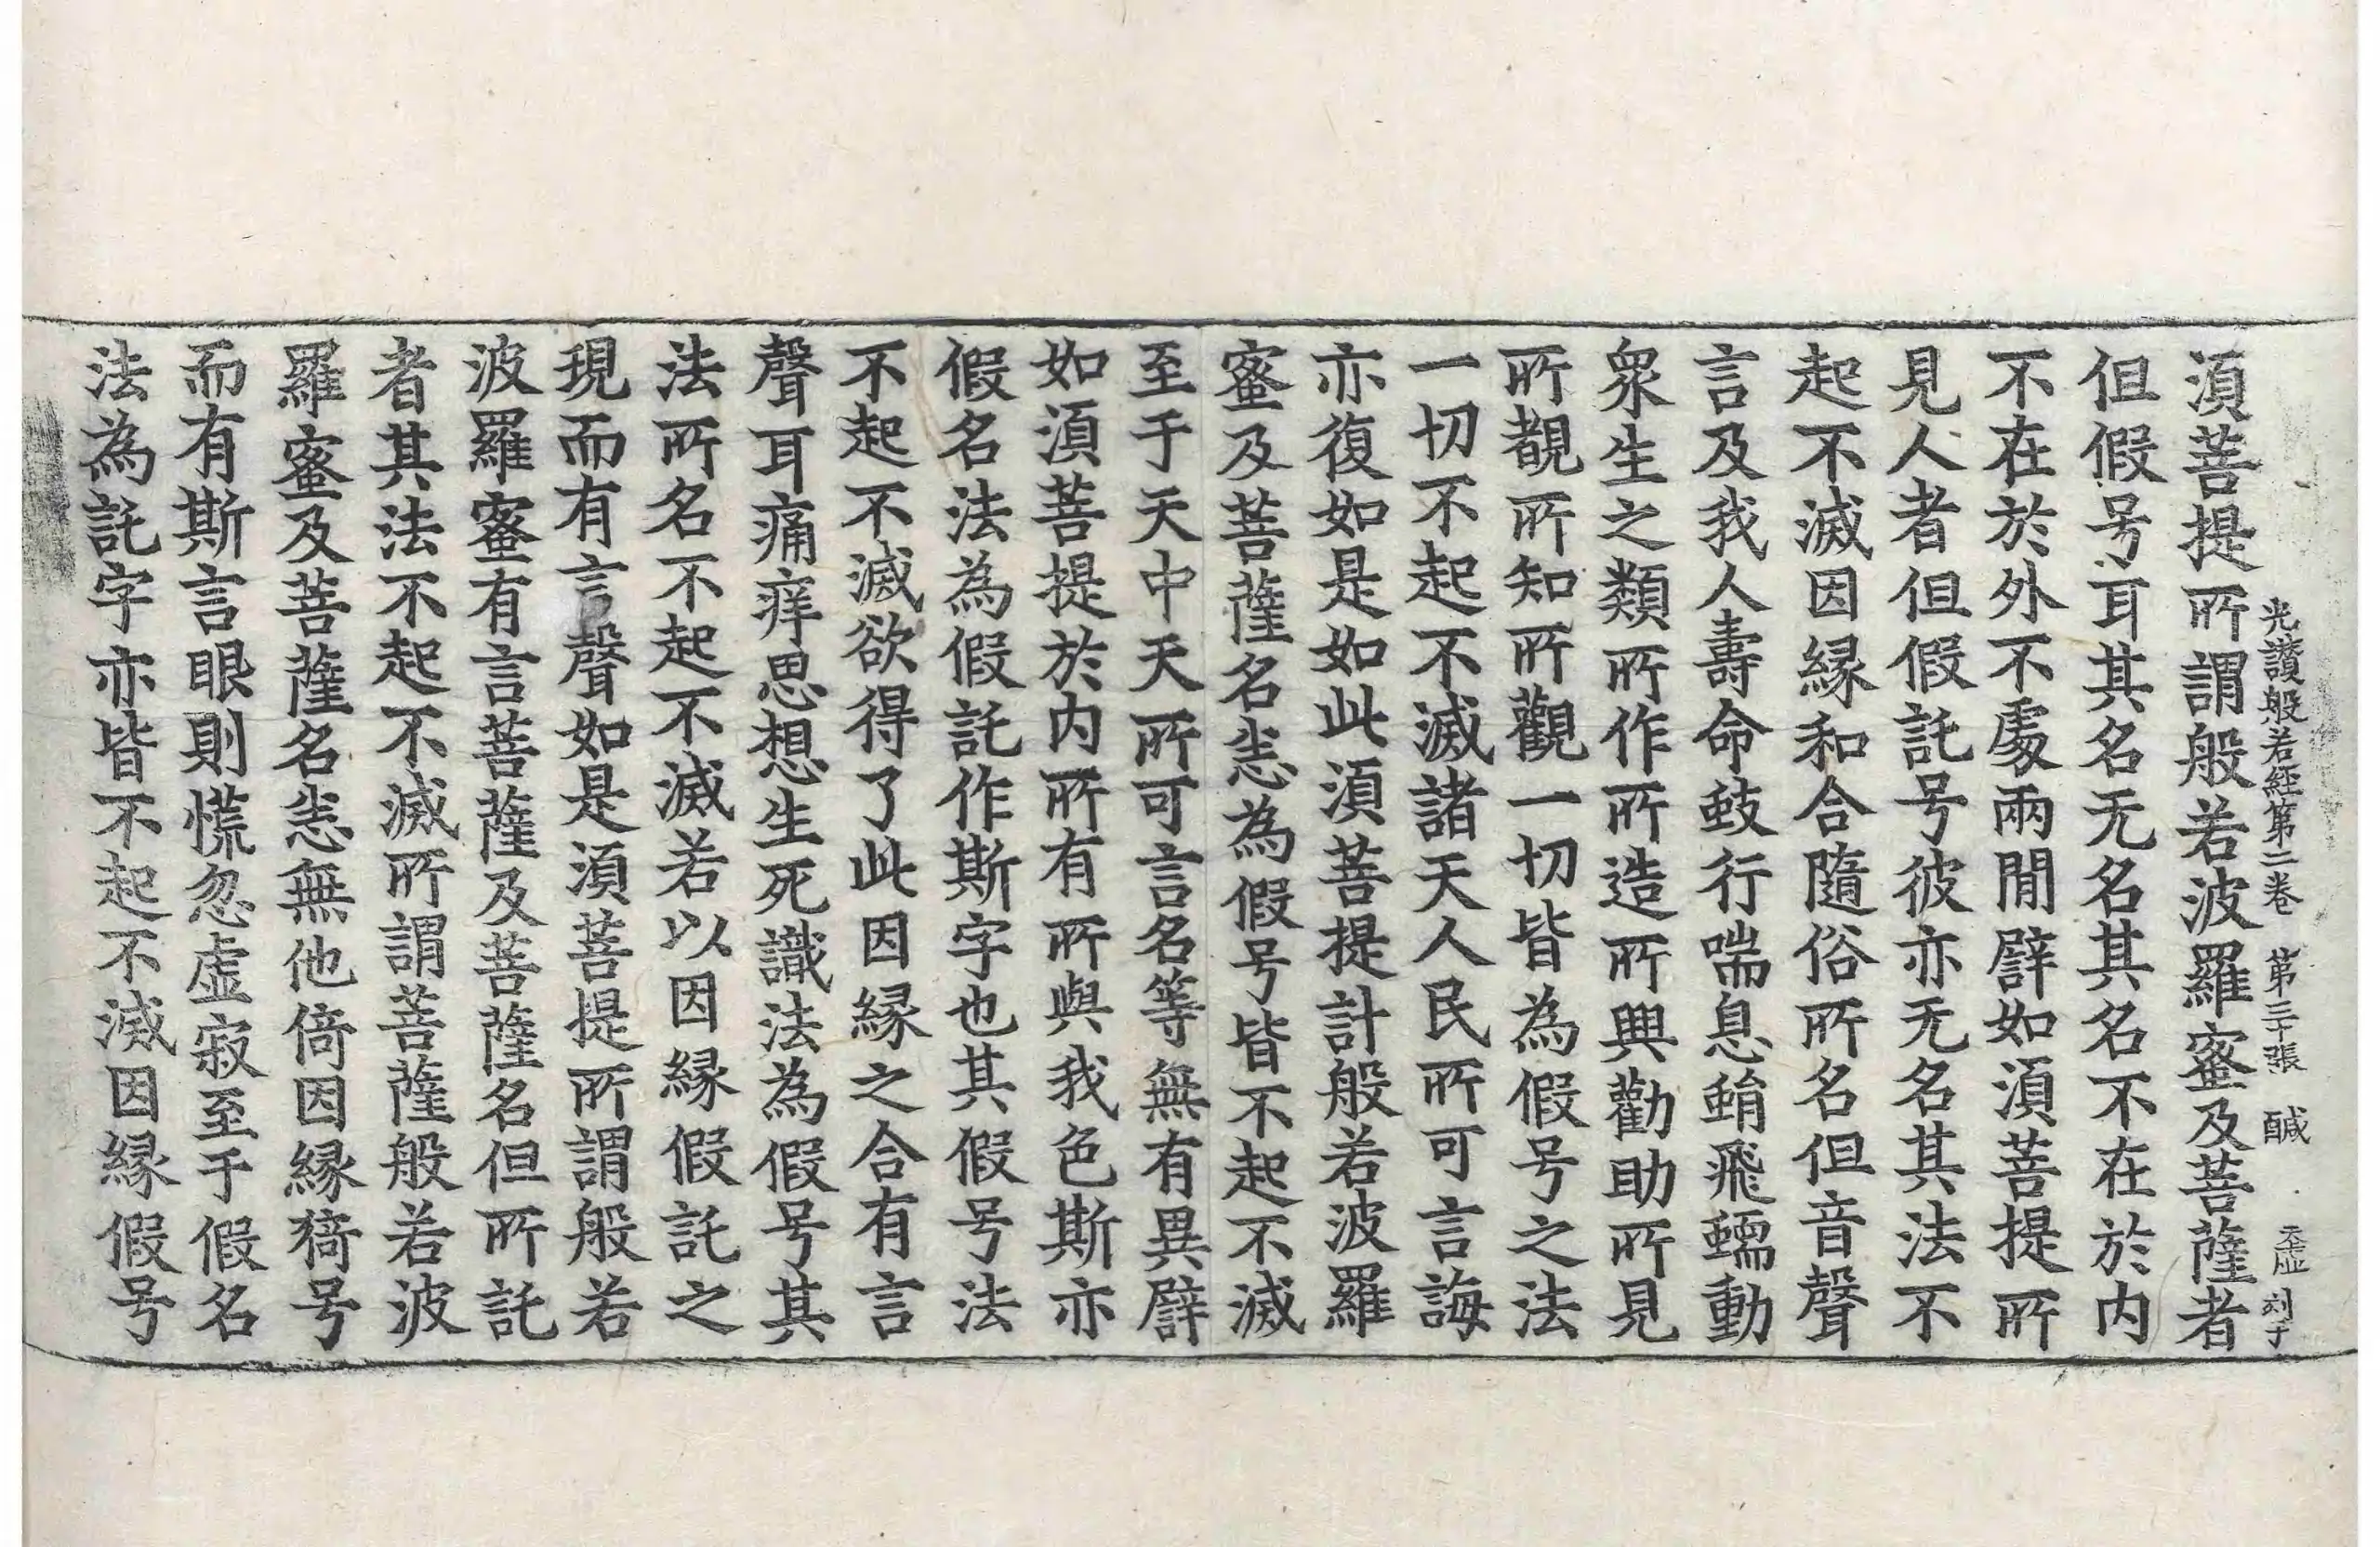 光讃般若經第二卷 第三十張 醎 天虛 刻手
湏菩提所謂般若波羅蜜及菩薩者
但假号耳其名无名其名不在於内
不在於外不處兩閒譬如湏菩提所
見人者但假託号彼亦无名其法不
起不滅因縁和合隨俗所名但音聲
言及我人壽命蚑行喘息蜎飛蠕動
衆生之類所作所造所興勸助所見
所覩所知所觀一切皆為假号之法
一切不起不滅諸天人民所可言誨
亦復如是如此湏菩提計般若波羅
蜜及菩薩名恙為假号皆不起不滅
至于天中天所可言名等無有異譬
如湏菩提於内所有所與我色斯亦
假名法為假託作斯字也其假号法
不起不滅欲得了此因縁之合有言
聲耳痛痒思想生死識法為假号其
法所名不起不滅若以因縁假託之
現而有言聲如是湏菩提所謂般若
波羅蜜有言菩薩及菩薩名但所託
者其法不起不滅所謂菩薩般若波
羅蜜及菩薩名恙無他倚因縁猗号
而有斯言眼則慌忽虛寂至于假名
法為託字亦皆不起不滅因縁假号